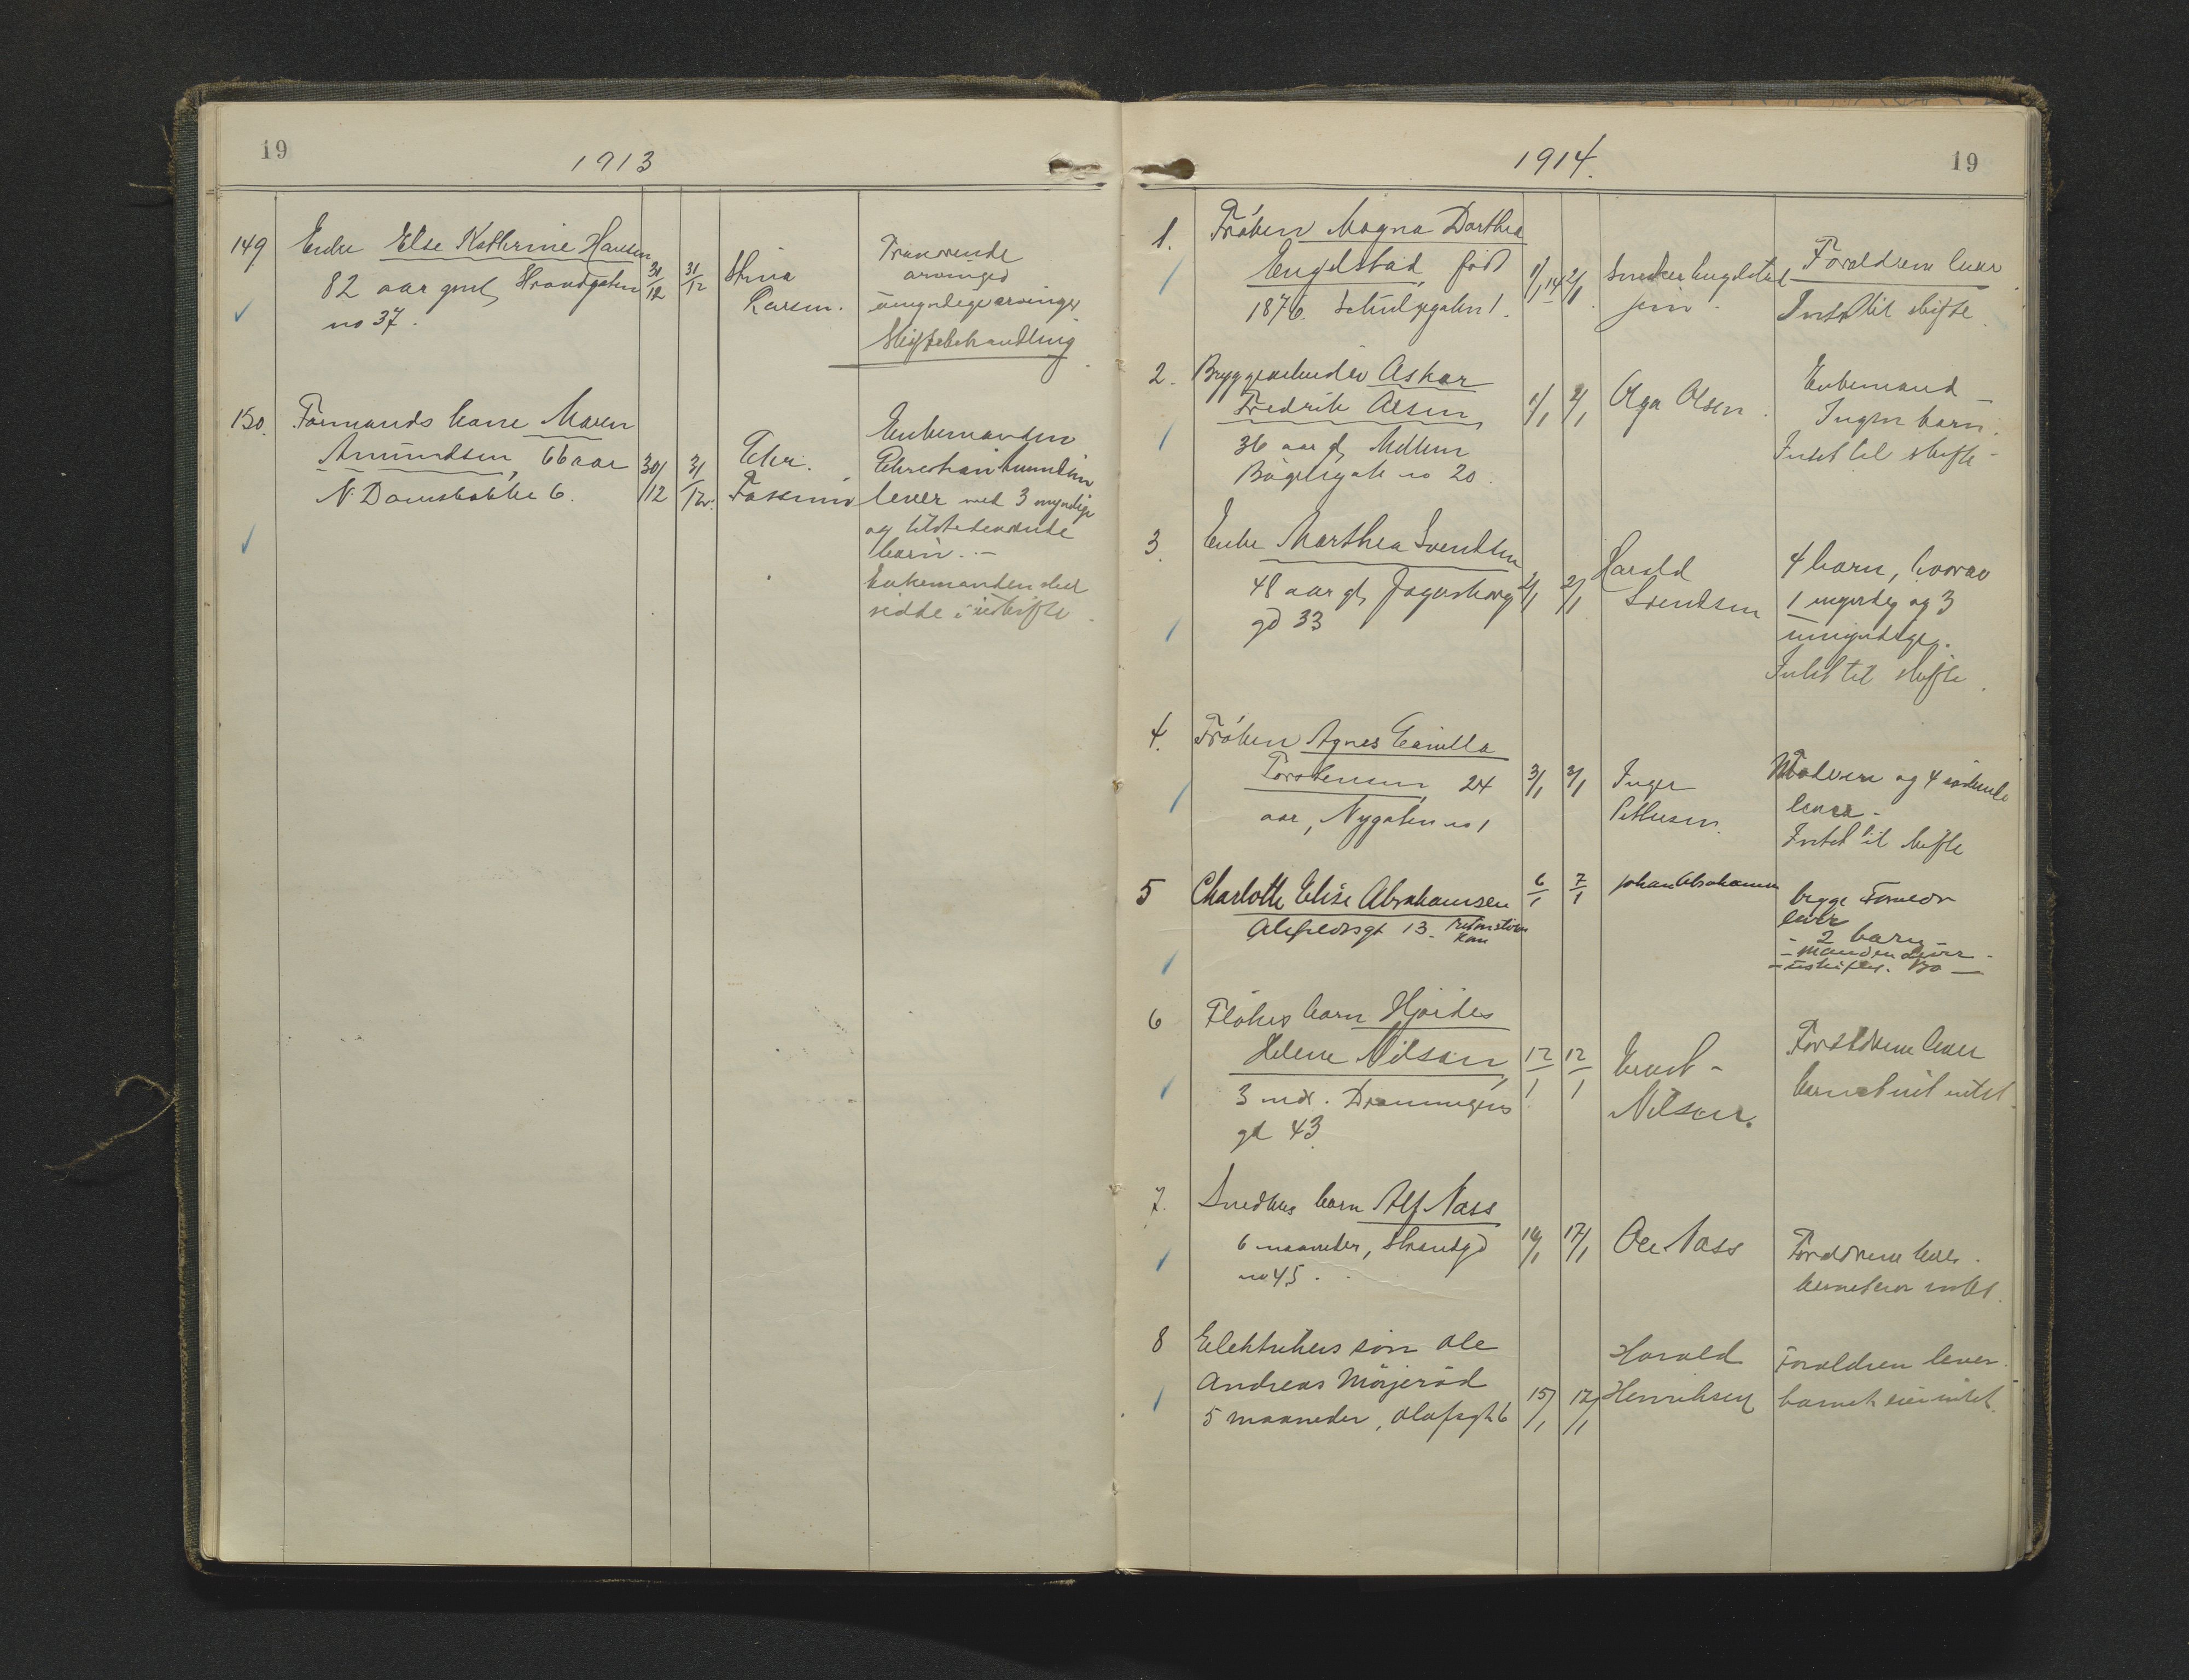 19
1913
149 Enke Else Kathrine Hansen
82 aar gml, Strandgaten
no 37.
31/12
31/12
Stina
Larsen.
Fraværende
arvinger
umyndige arvinger
Skiftebehandling
150. Formands kone Maren
Amundsen, 66 aar
N. Damsbakke 6.
30/12
31/12
Chr.
Enkemanden
Christian Amundsen
lever med 3 myndige
og tilstedeværende
barn. -
Enkemanden skal
sidde i uskifte.
19
1914.
1. Frøken Magna Dorthea
Engelstad, født
1876. Schultzgaten 1.
1/1 14
2/1
Snedker Engelstad
Forældrene lever
Intet til skifte.
2. Bryggearbeider Askar
Fredrik Olsen
36 aar gl, Mellem
Bøgeligate no 20.
1/1
2/1
Olga Olsen.
Enkemand
Ingen barn.
Intet til skifte -
3. Enke Marthea Svendsen
48 aar gl, Jegersborg
gd 33
2/1
2/1
Harald
Svendsen
4 barn, hvorav
1 myndig og 3
umyndige.
Intet til skifte.
4. Frøken Agnes Camilla
Torstensen, 24
aar, Nygaten no 1
3/1
3/1
Inger
Pettersen.
Moderen og 4 søskende
lever -
Intet til skifte
5 Charlotte Elise Abrahamsen
Alefeldtsgt 13.
kone
6/1
7/1
Johan Abrahamsen
begge Foreldr
lever
- 2 barn -
- Manden Lever -
- uskiftet Bo -
6 Fløters barn Hjørdis
Helene Nilsen,
3 mdr. Dronningens
gd 43
12/1
12/1
Ernst -
Nilsen.
Forældrene lever
barnet eiet intet
7. Snedkers barn Alf Næss
6 maaneder, Strandgd
no 45.
16/1
17/1
Ole Næss
Forældrene lever.
barnet eier intet.
8 Elektrikers søn Ole
Andreas Mørjerød
5 maaneder, Olafsgt 6
15/1
17/1
Harald
Henriksen
Forældren lever.
barnet eier intet.